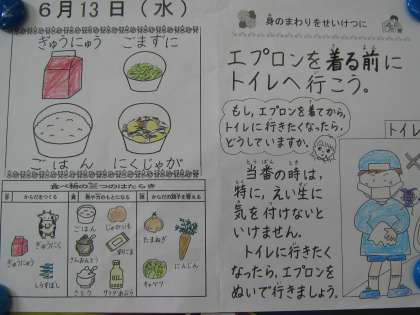 6月13日(水)
ぎゅうにゅう ごまずに
ごはん にくじゃが
食べ物の三つのはたらき
からだをつくる
ぎゅうにく
ぎゅうにゅう
しらすぼし
熱や力のもとになる
ごはん
じゃがいも
さんおんとう
さとう
サラダあぶら
からだの調子を整える
たまねぎ
にんじん
キャベツ
身のまわりをせいけつに
エプロンを着る前に
トイレへ行こう。
もし、エプロンを着てから、
トイレに行きたくなったら、
どうしていますか。
当番の時は、
特に、えい生に
気を付けないと
いけません。
トイレに行きたく
なったら、エプロンを
ぬいで行きましょう。
トイレ